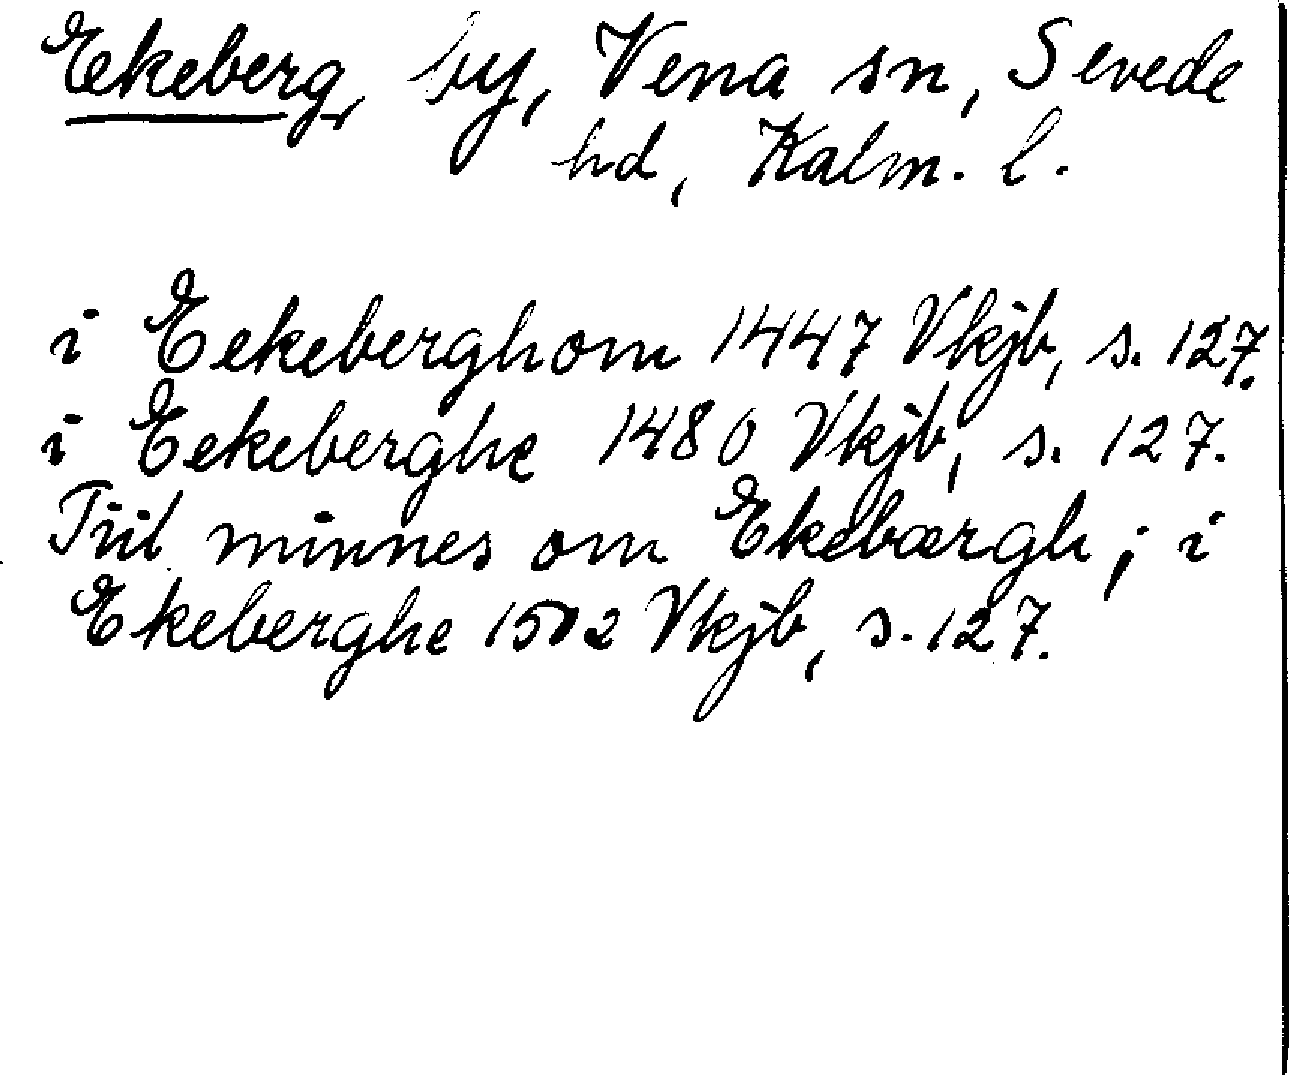 Ekeberg, by, Vena sn, Sevede
hd, Kalm. l.
i Eekeberghom 1447 Vkjb, s. 127.
i Eekeberghe 1480 Vkjb, s. 127.
Tiil minnes om Ekebærgh; i
Ekeberghe 1502 Vkjb, s. 127.